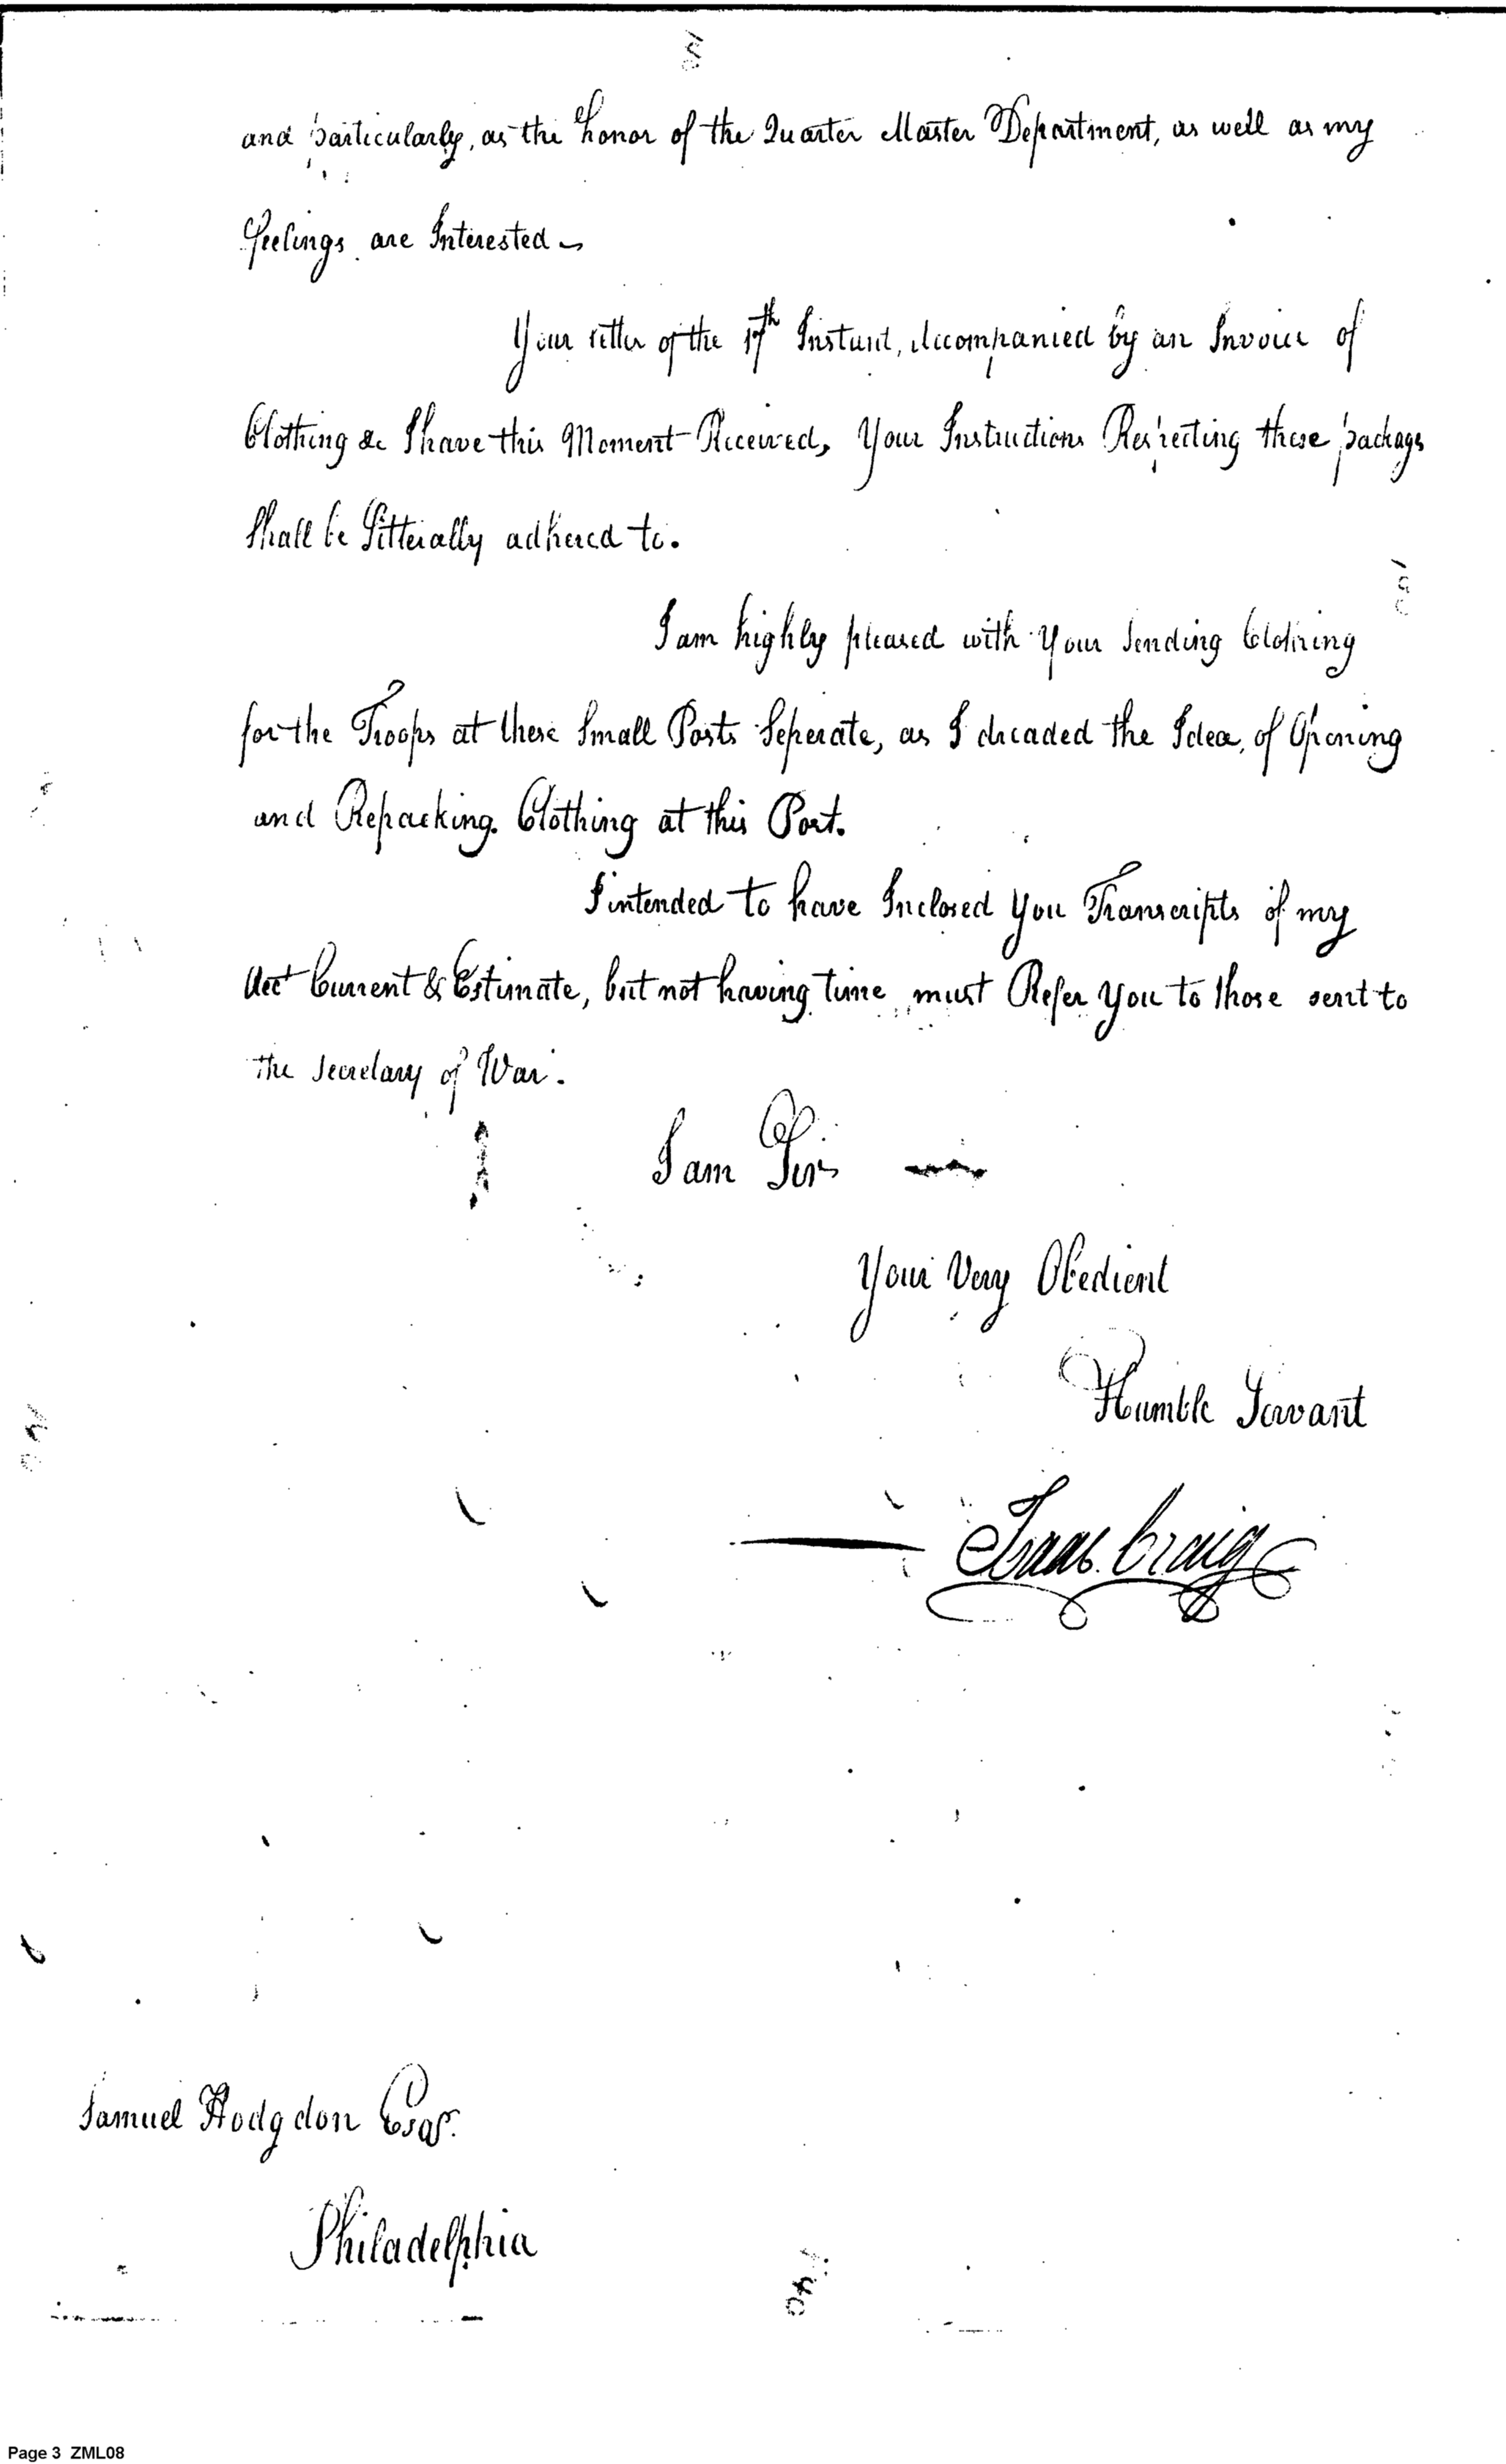 and particularly, as the honor of the Quarter Master Department, as well as my
feelings are Interested
Your letter of the 17th Instant, Accompanied by an Invoice of
Clothing &c I have this Moment Received, Your Instructions Respecting these packages
Shall be Litterally adhered to.
I am highly pleased with Your Sending Clothing
for the Troops at these Small Posts Seperate, as I dreaded the Idea, of Opening
and Repacking Clothing at this Port.
I intended to have Inclosed You Transcripts of my
Acct Current & Estimate, but not having time must Refer You to those sent to
the Secretary of War.
I am Sir
Your Very Obedient
Humble Servant
Isaac Craig
Samuel Hodgdon Esqr.
Philadelphia
Page 3 ZML08